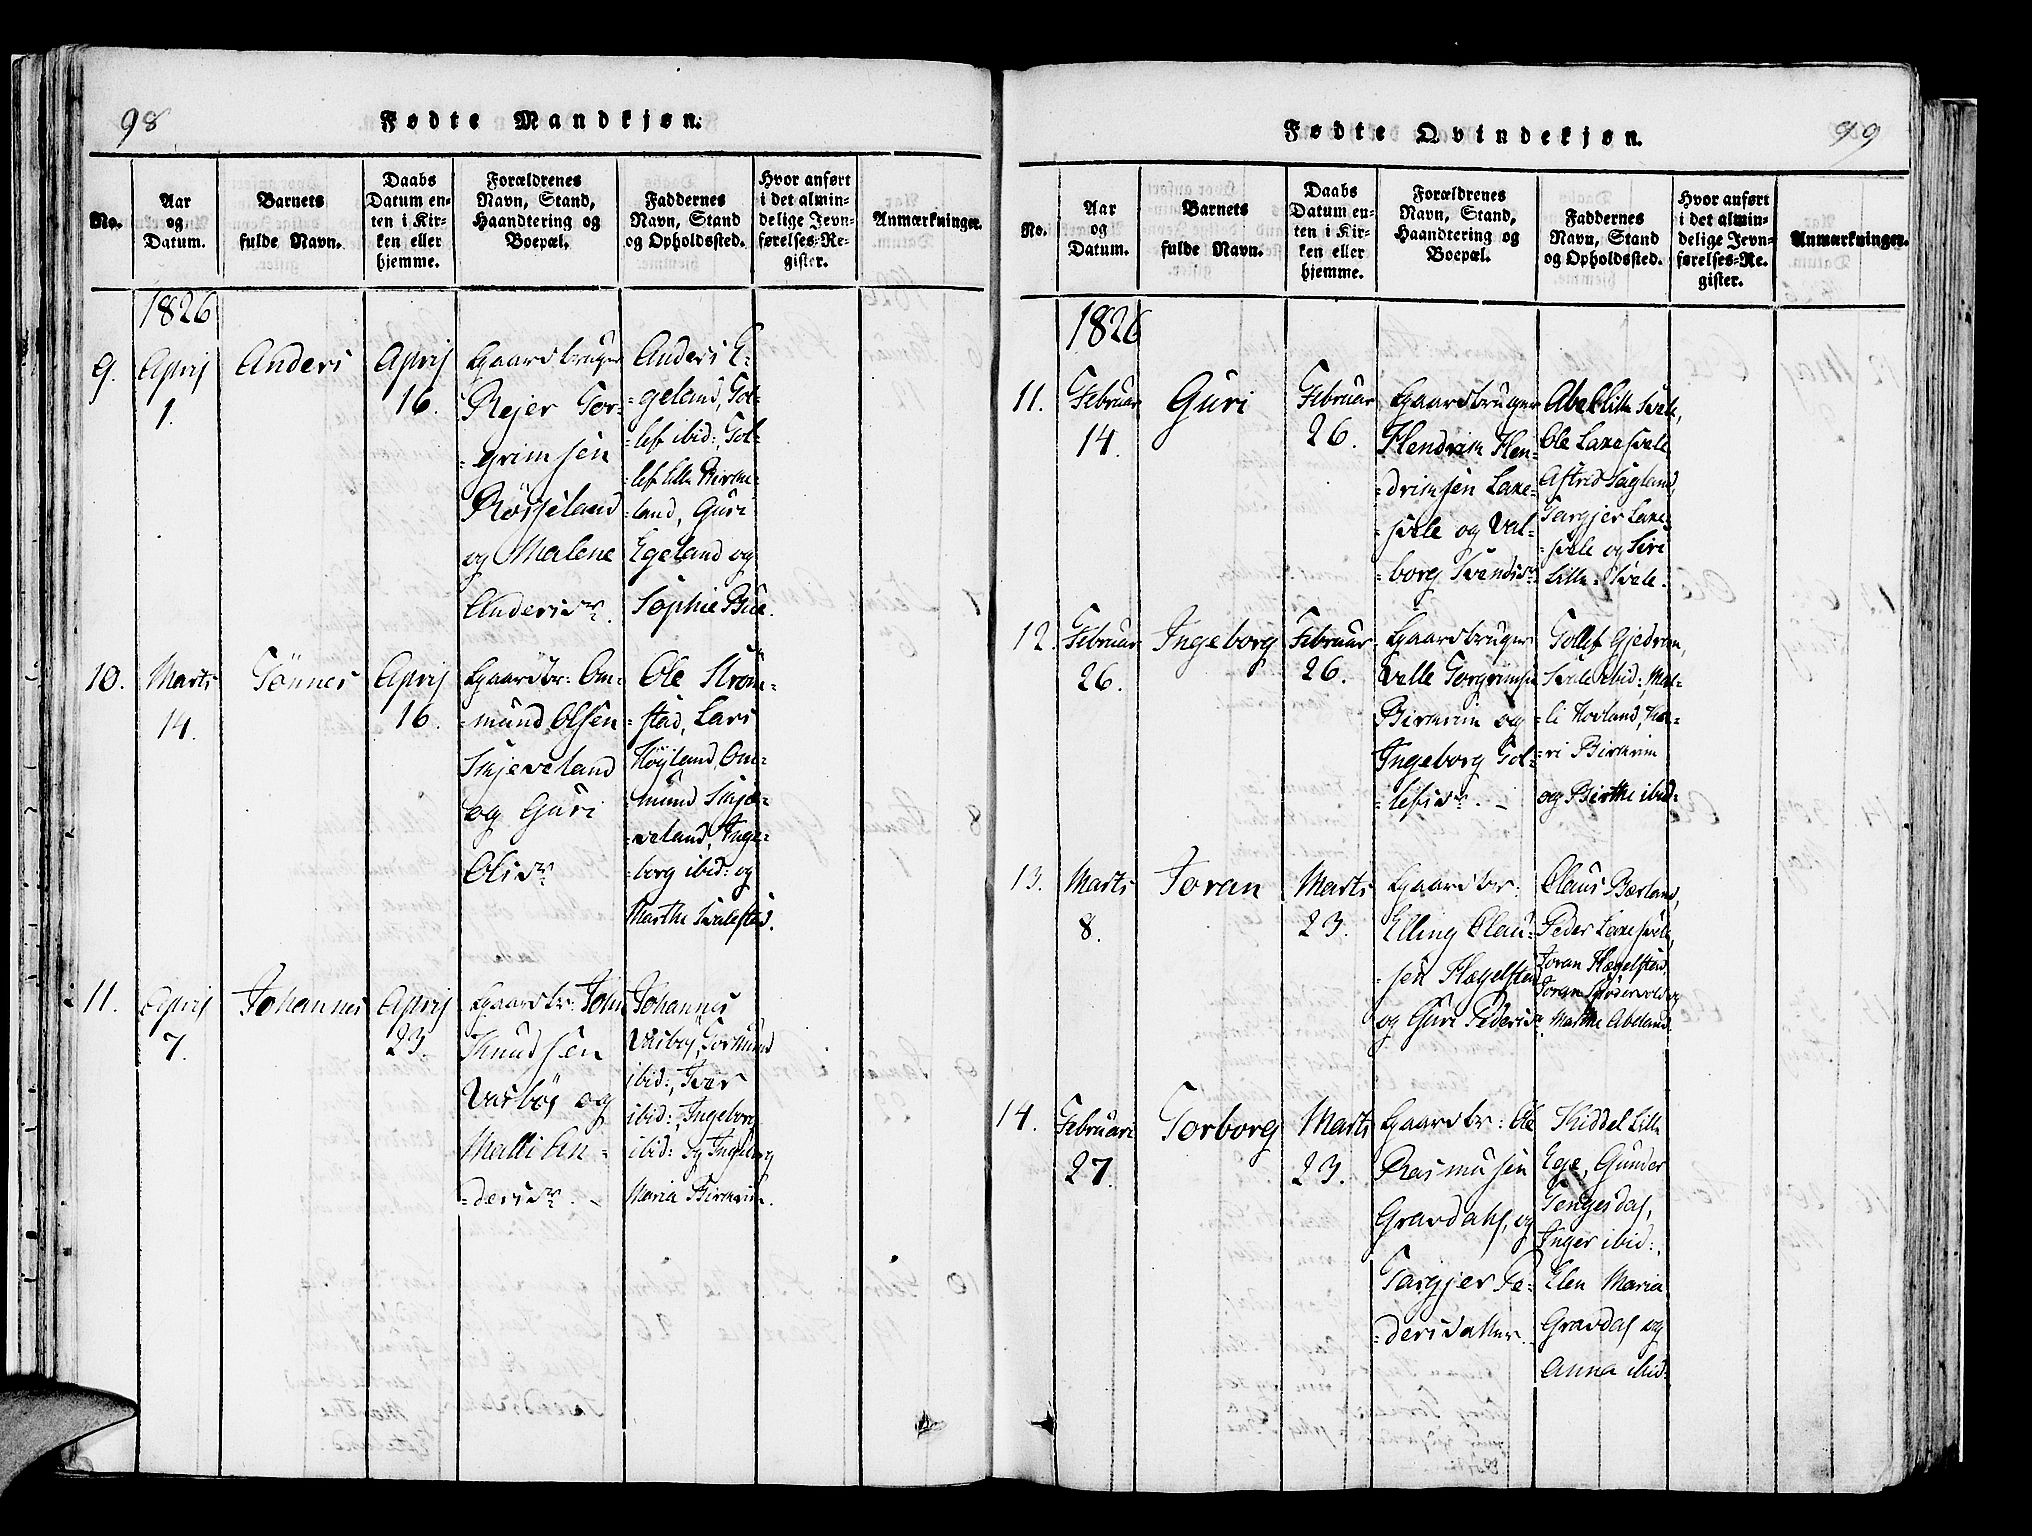 98
Fødte Mandkjøn.
No.
Aar
og
Datum.
Barnets
fulde Navn.
Daabs
Datum en-
ten i Kir-
ken eller
hjemme.
Forældrenes
Navn, Stand,
Haandtering og
Boepæl.
Faddernes
Navn, Stand
og Opholdssted.
Hvor anført
i det almin-
delige Jevn-
førelses-Re-
gister.
Anmærkninger.
1826
9.
April
1.
Anders
April
16.
Gaardbruger
Rejer Tor-
-grimsen
Røsseland
og Malene
Andersdr.
Anders E-
-geland, Tol-
-lef ibid:, Tol-
-lef lille Birke-
-land, Guri
Egeland og
Sophie Bue.
10.
Marts
14.
Tønnes
April
16.
Gaardbr: Om-
-mund Olsen
Skjeveland
og Guri
Olsdr.
Ole Strøm-
-stad, Lars
Høyland, Om-
-mund Skjæ-
-veland, Inge-
-borg ibid: og
Marthe Svalestad.
11.
April
7.
Johannes
April
23.
Gaardbr: John
Knudsen
Vasbøe og
Malli An-
-dersdr. -
Johannes
Vasbøe, Tormund
ibid:, Iver
ibid:, Ingeborg
ibid: og Ingeborg
Maria Birkrim.
Fødte Qvindekjøn.
99
No.
Aar
og
Datum.
Barnets
fulde Navn.
Daabs
Datum en-
ten i Kir-
ken eller
hjemme.
Forældrenes
Navn, Stand,
Haandtering og
Boepæl.
Faddernes
Navn, Stand
og Opholdssted.
Hvor anført
i det almin-
delige Jevn-
førelses-Re-
gister.
Anmærkninger.
1826
11.
Februar
14.
Guri
Februar
26.
Gaardbruger
Hendrik Hen-
-driksen Laxe-
-svele og Val-
-borg Svendsdr.
Abel Lille Svele,
Ole Laxesvele
Astrid Sagland,
Targjer Laxe-
-svele og Siri
Lille Svele.
12.
Februar
26.
Ingeborg
Februar
26.
Gaardbruger
Velle Torgrimsen
Birkrim og
Ingeborg Tol-
-lefsdr. -
Tollef Gjedrem,
Svele ibid:, Mal-
-li Hovland, Ka-
-ri Birkrim
og Birthe ibid.
13.
Marts
8.
Joran
Marts
23.
Gaardbr:
Elling Clau-
-sen Hægelstad
og Guri Pedersdr
Claus Bærland,
Peder Laxesvele,
Joran Hægelstad,
Joran og
Marthe Abeland.
14.
Februari
27.
Torborg
Marts
23.
Gaardbr: Ole
Rasmusen
Gravdahl, og
Targjer Pe-
-dersdatter.
Kiddel Lille
Ege, Gunder
Tengesdal,
Inger ibid:,
Elen Maria
Gravdal og
Anna ibid.